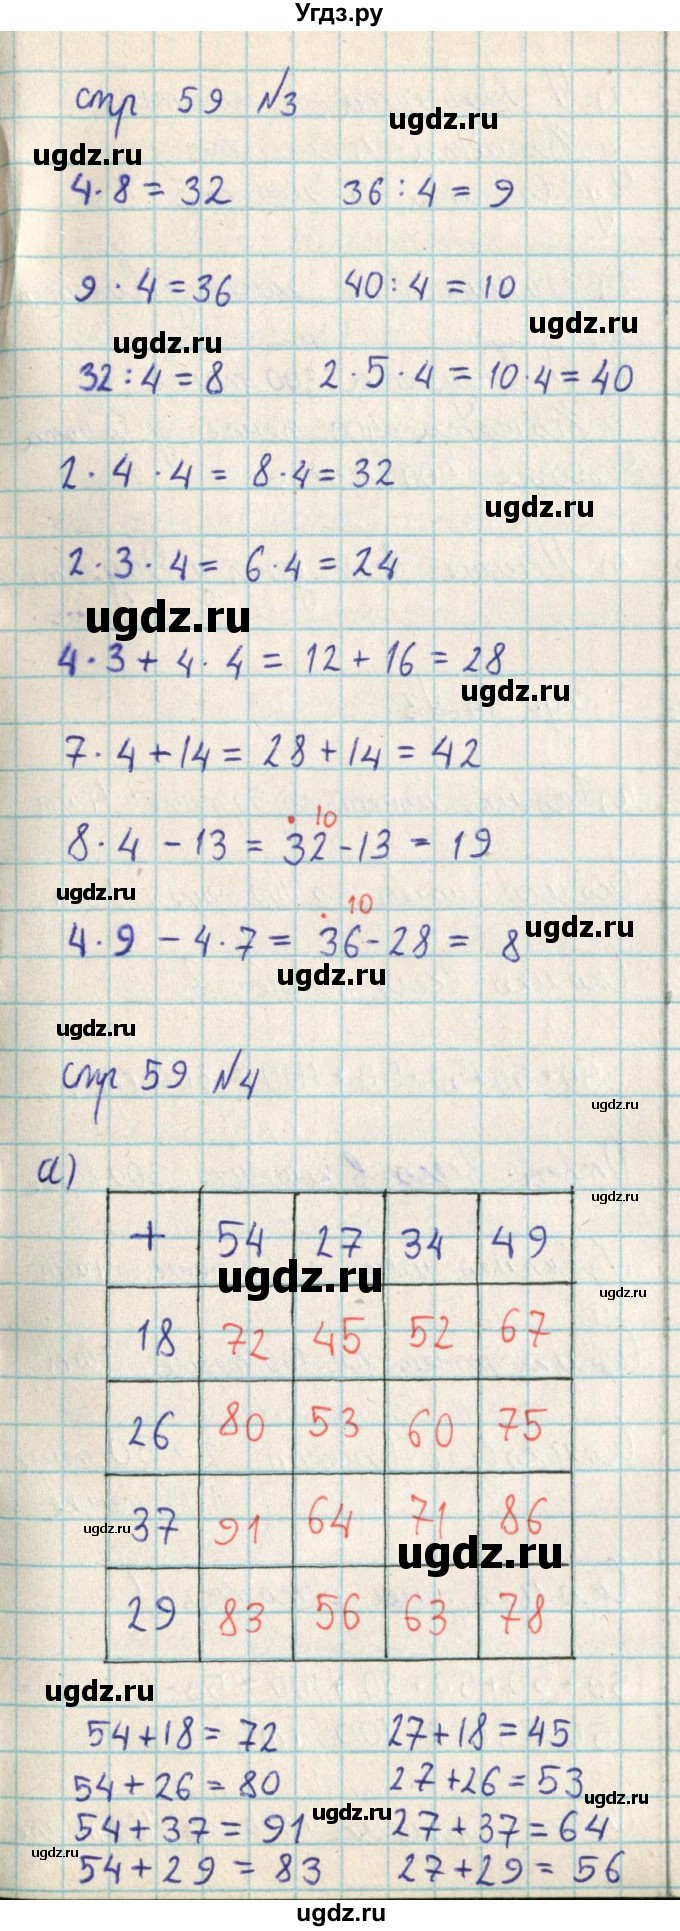 Угдз.ру
стр 59 №3
ugdz.ru
ugdz.ru
4·8=32 36:4=9
9·4=36 40:4=10
ugdz.ru
ugdz.ru
32:4=8 2·5·4=10·4=40
2·4·4=8·4=32
ugdz.ru
2·3·4=6·4=24
ugdz.ru
4·3+4·4=12+16=28
ugdz.ru
7·4+14=28+14=42
10
8·4-13=32-13=19
ugdz.ru
10
4·9-4·7=36-28=8
ugdz.ru
ugdz.ru
ugdz.ru
стр 59 №4
ugdz.ru
а)
ugdz.ru
+ 54 27 34 49
ugdz.ru
ugdz.ru
18 72 45 52 67
26 80 53 60 75
37 91 64 71 86
ugdz.ru
ugdz.ru
29 83 56 63 78
ugdz.ru
54+18=72 27+18=45
54+26=80 27+26=53
ugdz.ru
ugdz.ru
54+37=91 27+37=64
ugdz.ru
54+29=83 27+29=56
ugdz.ru